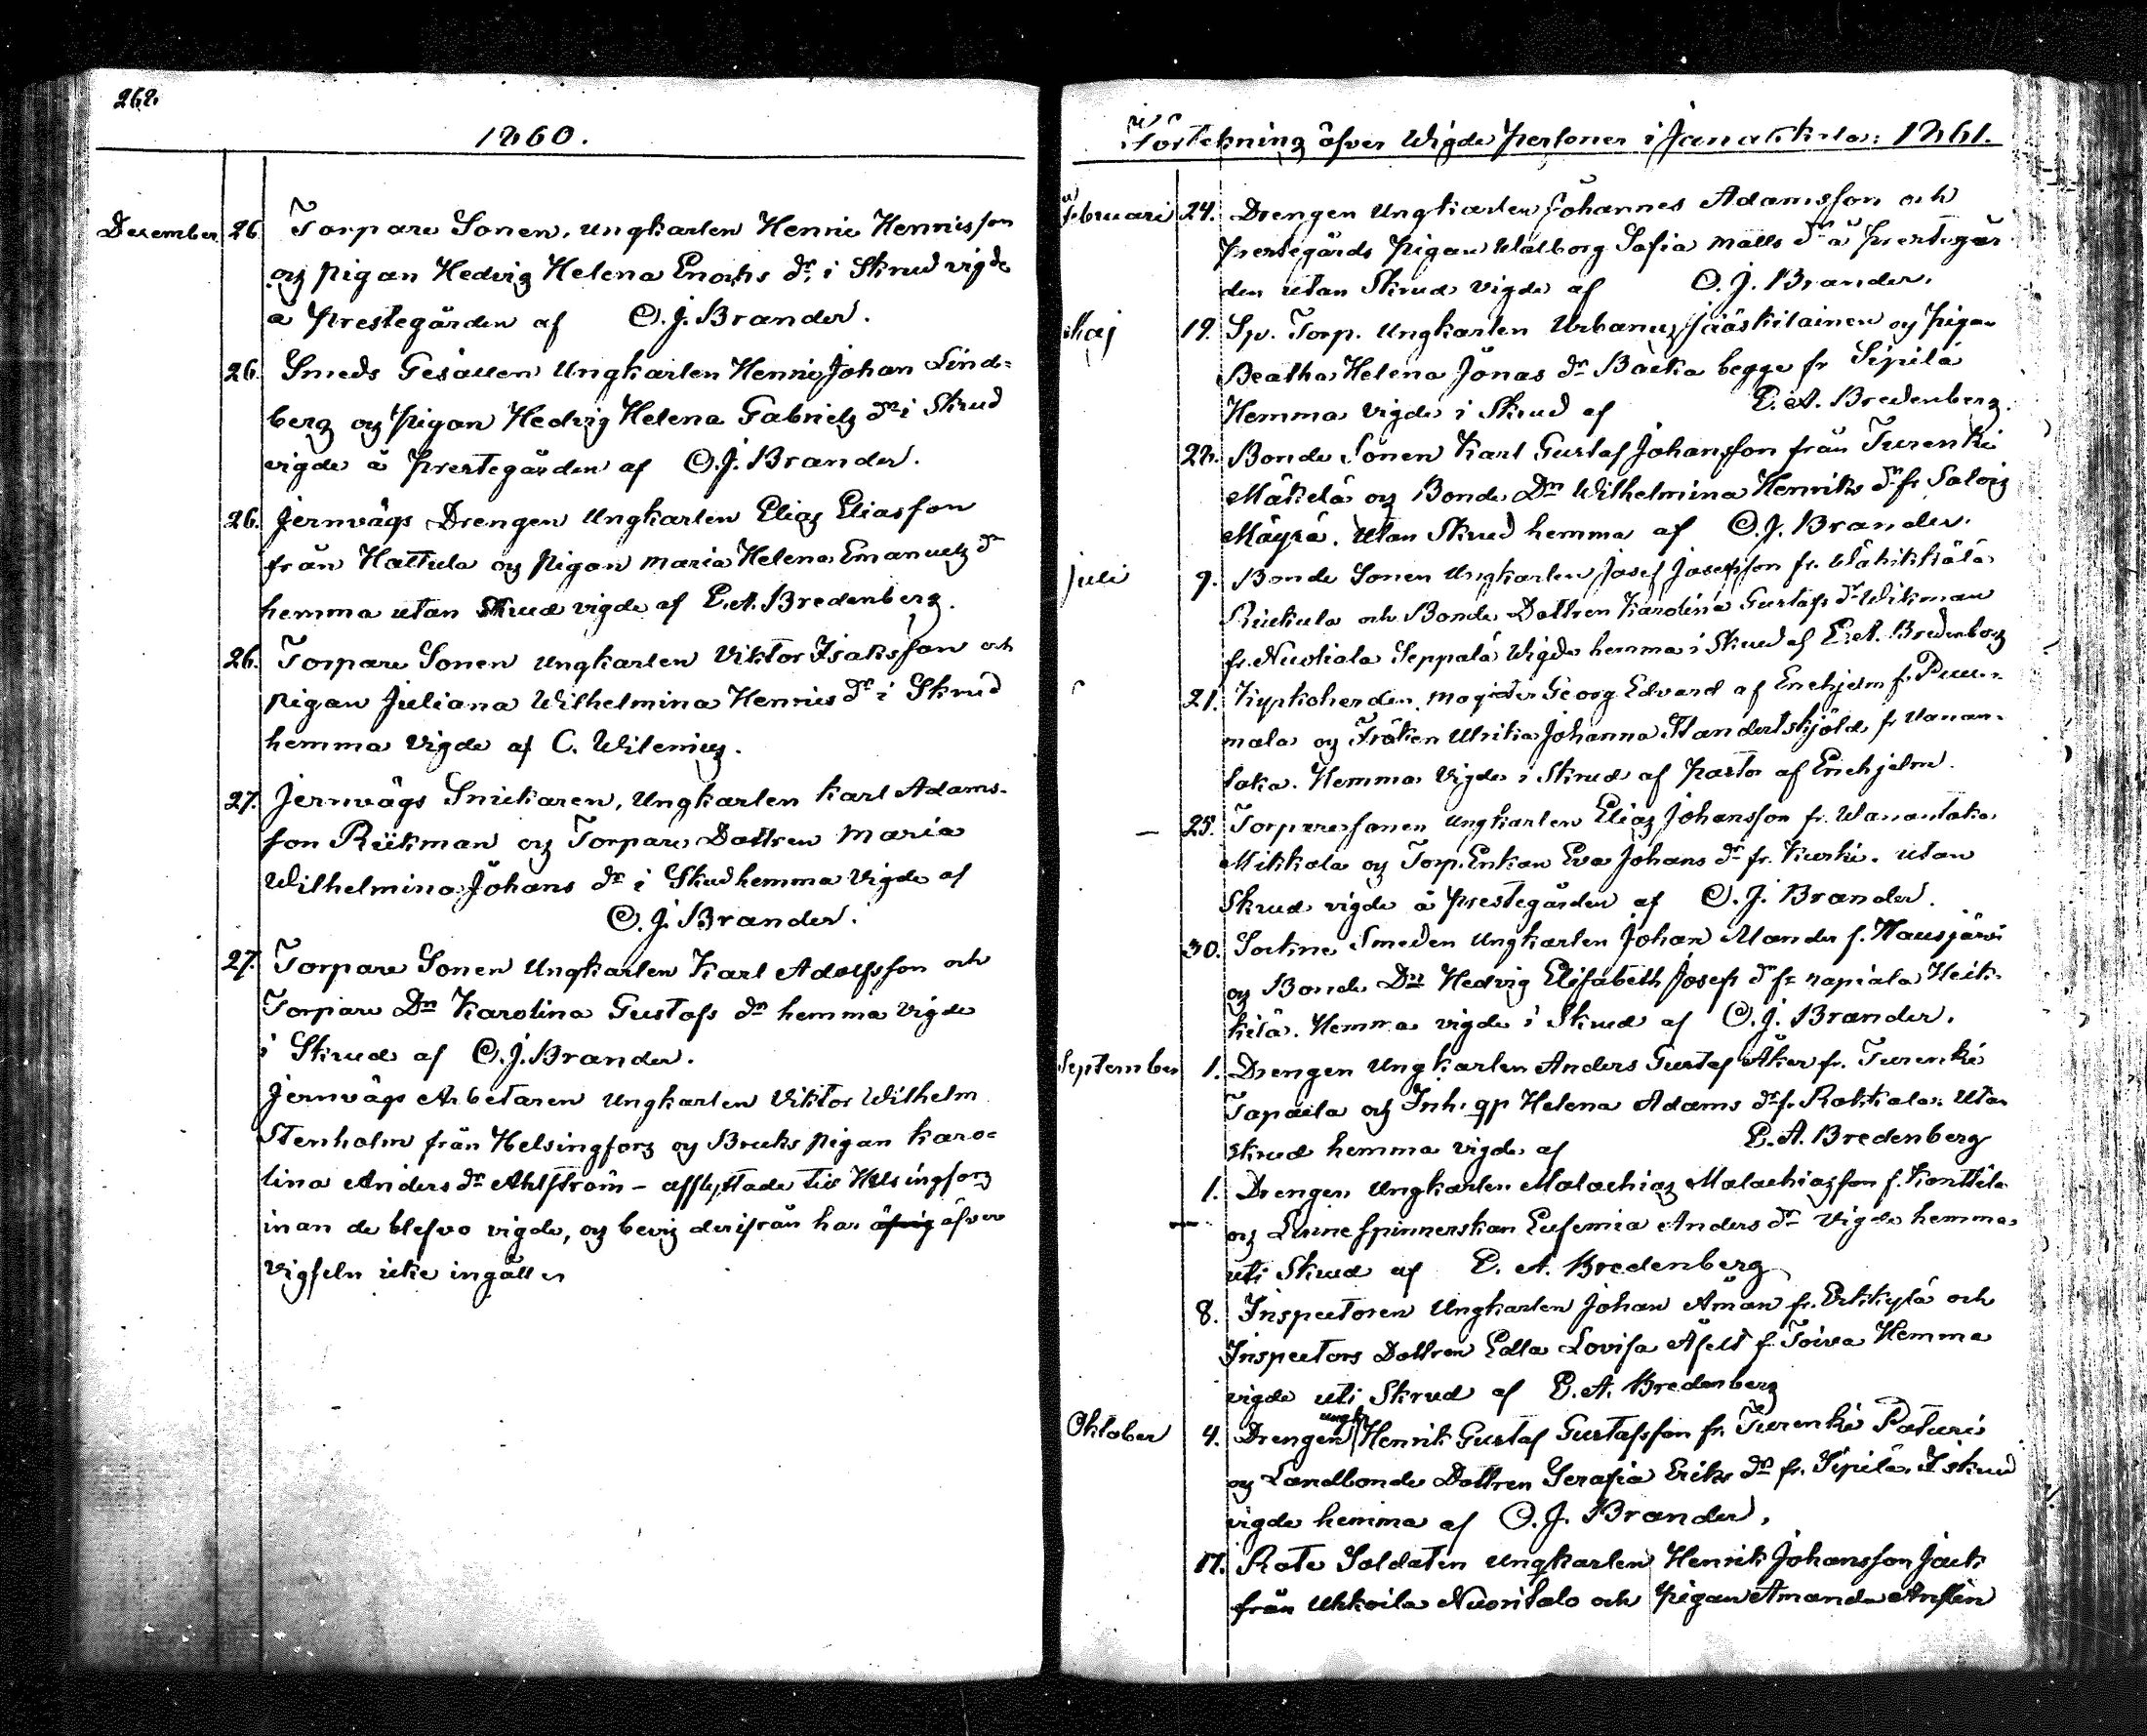 262.
1860.
December 26 Torpare Sonen, ungkarlen Henric Henricsson
og pigan Hedvig Helena Enochs dr. i Skrud vigde
å Prestegården af O. J. Brander.
26. Smeds Gesällen Ungkarlen Henric Johan Lind=
berg og Pigan Hedvig Helena Gabriels dr i Skrud
vigde å Prestegården af O. J. Brander.
26. Jernvägs Drengen Ungkarlen Elias Eliasson
från Hattula og Pigan Maria Helena Emanuels dr
hemma utan Skrud vigde af E. A. Bredenberg.
26. Torpare Sonen Ungkarlen Viktor Isaksson och
pigan Juliana Wilhelmina Henrics dr i Skrud
hemma vigde af C. Wilenius.
27. Jernvägs Snickaren, Ungkarlen Karl Adams-
son Rückman og Torpare Dottren Maria
Wilhelmina Johans dr i Skrud hemma vigde af
O. J. Brander.
27. Torpare Sonen Ungkarlen Karl Adolfsson och
Torpare Dn Karolina Gustafs dr hemma vigde
i Skrud af O. J. Brander.
Jernvägs Arbetaren Ungkarlen Viktor Wilhelm
Stenholm från Helsingfors og Bruks pigan Karo=
lina Anders dr Ahlström – afflyttade till Helsingfors
inan de blefvo vigde, og bevis derifrån har öfver
vigseln icke ingått
Förtekning öfver Wigde Personer i Janakkala: 1861.
Februari 24. Drengen Ungkarlen Johannes Adamsson och
Prestegårds Pigan Walborg Sofia Matts dr å Prestegår
den utan Skrud vigde af O. J. Brander.
Maj 19. Sv. Torp. Ungkarlen Urbanus Jääskilainen og Pigan
Beatha Helena Jonas dr Backa begge fr Sipilä
Hemma vigde i Skrud af E. A. Bredenberg.
Bonde Sonen Karl Gustaf Johansson från Turenki
Mäkelä og Bonde Dn Wilhelmina Henriks dr fr Salois
Mäyrä. Utan Skrud hemma af O. J. Brander.
Juli 9. Bonde Sonen Ungkarlen Josef Josefsson fr. Wähikkälä
och Bonde Dottren Karolina Gustafs dr Wikman
fr. Nuoliala Seppälä Wigde hemma i Skrud af E. A. Bredenberg
21. Kyrkoherden, magister Georg Edvard af Enehjelm fr Puu-
mala og Fröken Ulrika Johanna Standertskjöld fr Vanan-
taka. Hemma vigde i Skrud af Pastor af Enehjelm.
— 25. Torparesonen Ungkarlen Elias Johansson fr. Wanantaka
Mikkola og Torp. Enkan Eva Johans dr fr. Kurki. Utan
Skrud vigde å Prestegården af O. J. Brander.
30. Sockne Smeden Ungkarlen Johan Mander f. Hausjärvi
og Bonde Dn Hedvig Elisabeth Josefs dr fr Napiala Heik-
kilä. Hemma vigde i Skrud af O. J. Brander.
September 1. Drengen Ungkarlen Anders Gustaf Åker fr. Turenki
Tapaila og Inh. qp Helena Adams dr fr. Rokkala. Utan
skrud hemma vigde af E. A. Bredenberg
1. Drengen Ungkarlen Malachias Malachiasson f. Konttila
og Linnespinnerskan Eufemia Anders dr vigde hemma
uti Skrud af E. A. Bredenberg
8. Inspectoren Ungkarlen Johan Åman fr. Erkkylä och
Inspectors Dottren Edla Lovisa f. Toiva Hemma
vigde uti Skrud af E. A. Bredenberg
Oktober 4. Drengen ungk. Henrik Gustaf Gustafsson fr. Turenki Paturi
og Landbonde Dottren Serafia Eriks dr fr. Sipilä. I skrud
vigde hemma af O. J. Brander.
17. Rote Soldaten Ungkarlen Henrik Johansson Jack
från Uhkoila Nuoritalo och Pigan Amanda